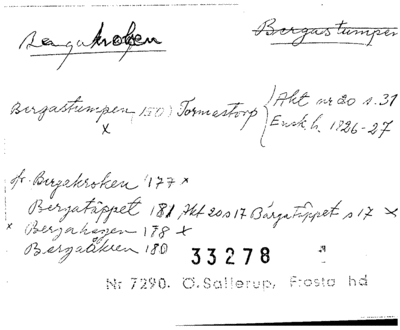 Bergakroken
Bergastumpen
Bergastumpen (150) Tormastorp { Akt nr 20 s. 31
x Ensk h. 1826-27
jfr. Bergakroken 177 x
Bergatäppet 181 Akt 20 s 17 Bärgatäppet s 17 x
x Bergahagen 178 x
Bergaåkren 180 33278
Nr 7290. Ö. Sallerup, Frosta hd